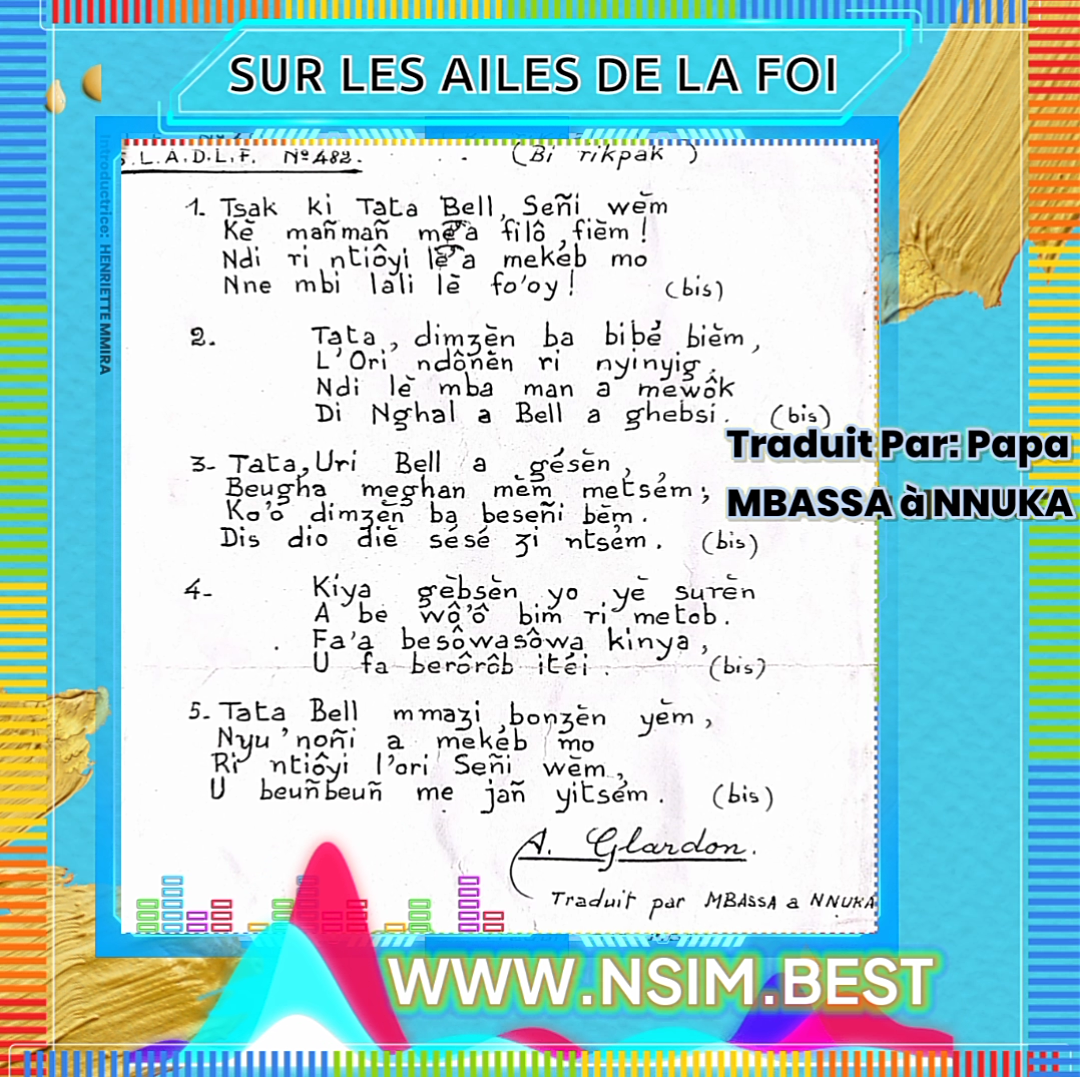 SUR LES AILES DE LA FOI
S.L.A.D.L.F. Nº 482. (Bi rikpak)
Introductrice: HENRIETTE MMIRA
1. Tsak ki Tata Bell, Señi wěm
Kě mañmañ a filô, fiěm!
Ndi ri ntiôyi a mekéb mo
Nne mbi lali lě fo'oy! (bis)
2. Tata, dimʒěn ba bibé biěm,
L'Ori ndôněn ri nyinyig,
Ndi lě mba man a mewôk
Di Nghal a Bell a ghebsi. (bis)
3- Tata, Uri Bell a gésěn,
Beugha meghan měm metsém;
Ko'ô dimʒěn ba beseñi běm.
Dis dio diě sésé ʒi ntsém. (bis)
4- Kiya gěbsěn yo yě surěn
A be wô'ô bim ri metob.
Fa'a besôwasôwa kinya,
U fa berôrôb itéi. (bis)
5- Tata Bell mmaʒi, bonʒěn yěm,
Nyu'noñi a mekéb mo
Ri ntiôyi l'ori Señi wěm,
U beuñbeuñ me jañ yitsém. (bis)
A. Glardon.
Traduit par MBASSA a NNUKA
Traduit Par: Papa
MBASSA à NNUKA
WWW.NSIM.BEST